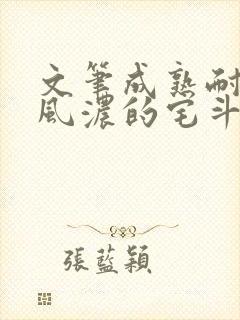 文筆成熟耐
風濃的宅斗
張藍穎